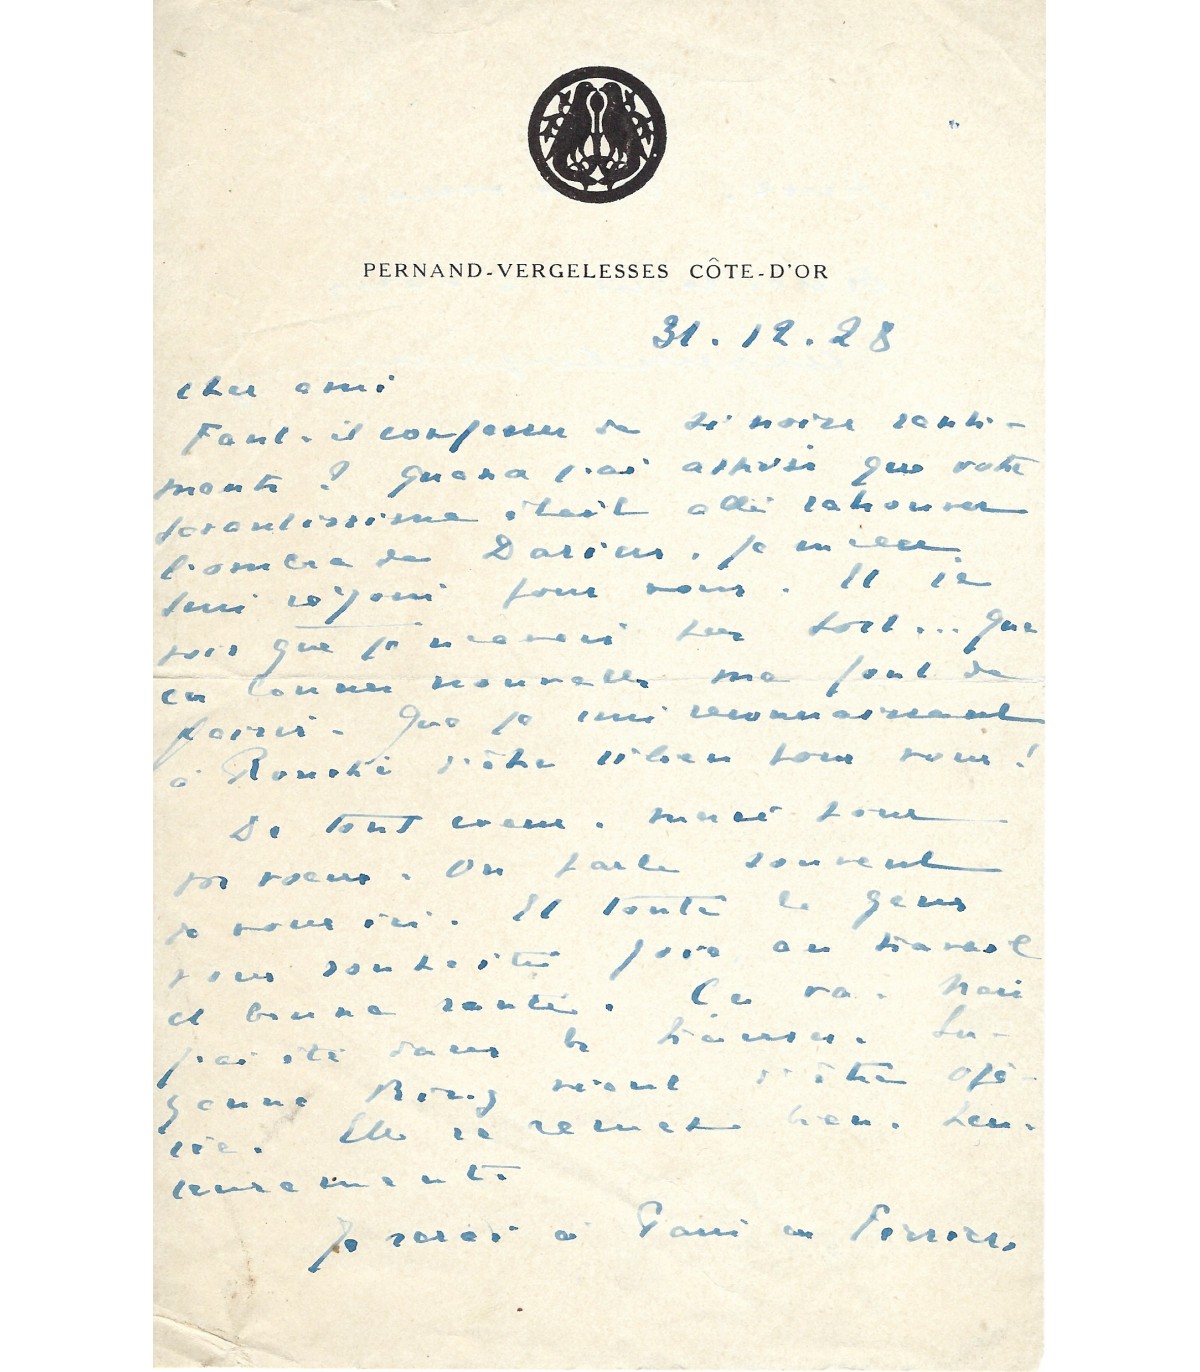 PERNAND-VERGELESSES CÔTE-D'OR
31.12.28
Cher ami
Faut-il confesser de si noirs senti-
ments ? Quand j'ai appris que votre
était allé retrouver
l'ombre de Darius, je
suis réjoui pour vous. Et je
vois que sur sort... Que
ces bonnes nouvelles me font de
plaisir. Que je suis reconnaissant
à Rouché d'être si bien pour vous !
De tout coeur, merci pour
vos voeux. On parle souvent
de vous ici. Et toute le gens
vous souhaite joie au travail
et bonne santé. Ça va. Mais
j'ai été dans les transes. Su-
zanne Bing vient d'être opé-
rée. Elle se remet bien. Heu-
reusement.
Je serai à Paris en Février.